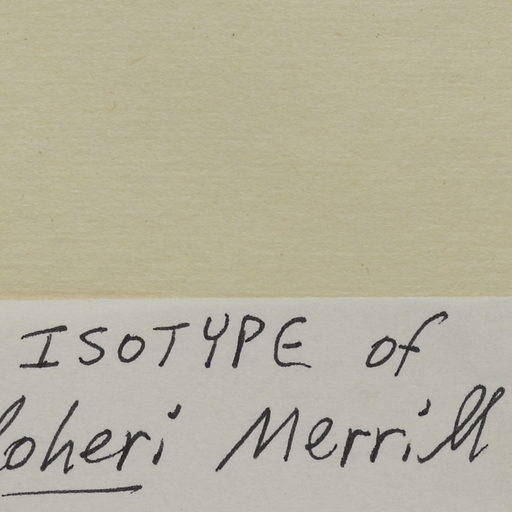 ISOTYPE of
loheri Merrill